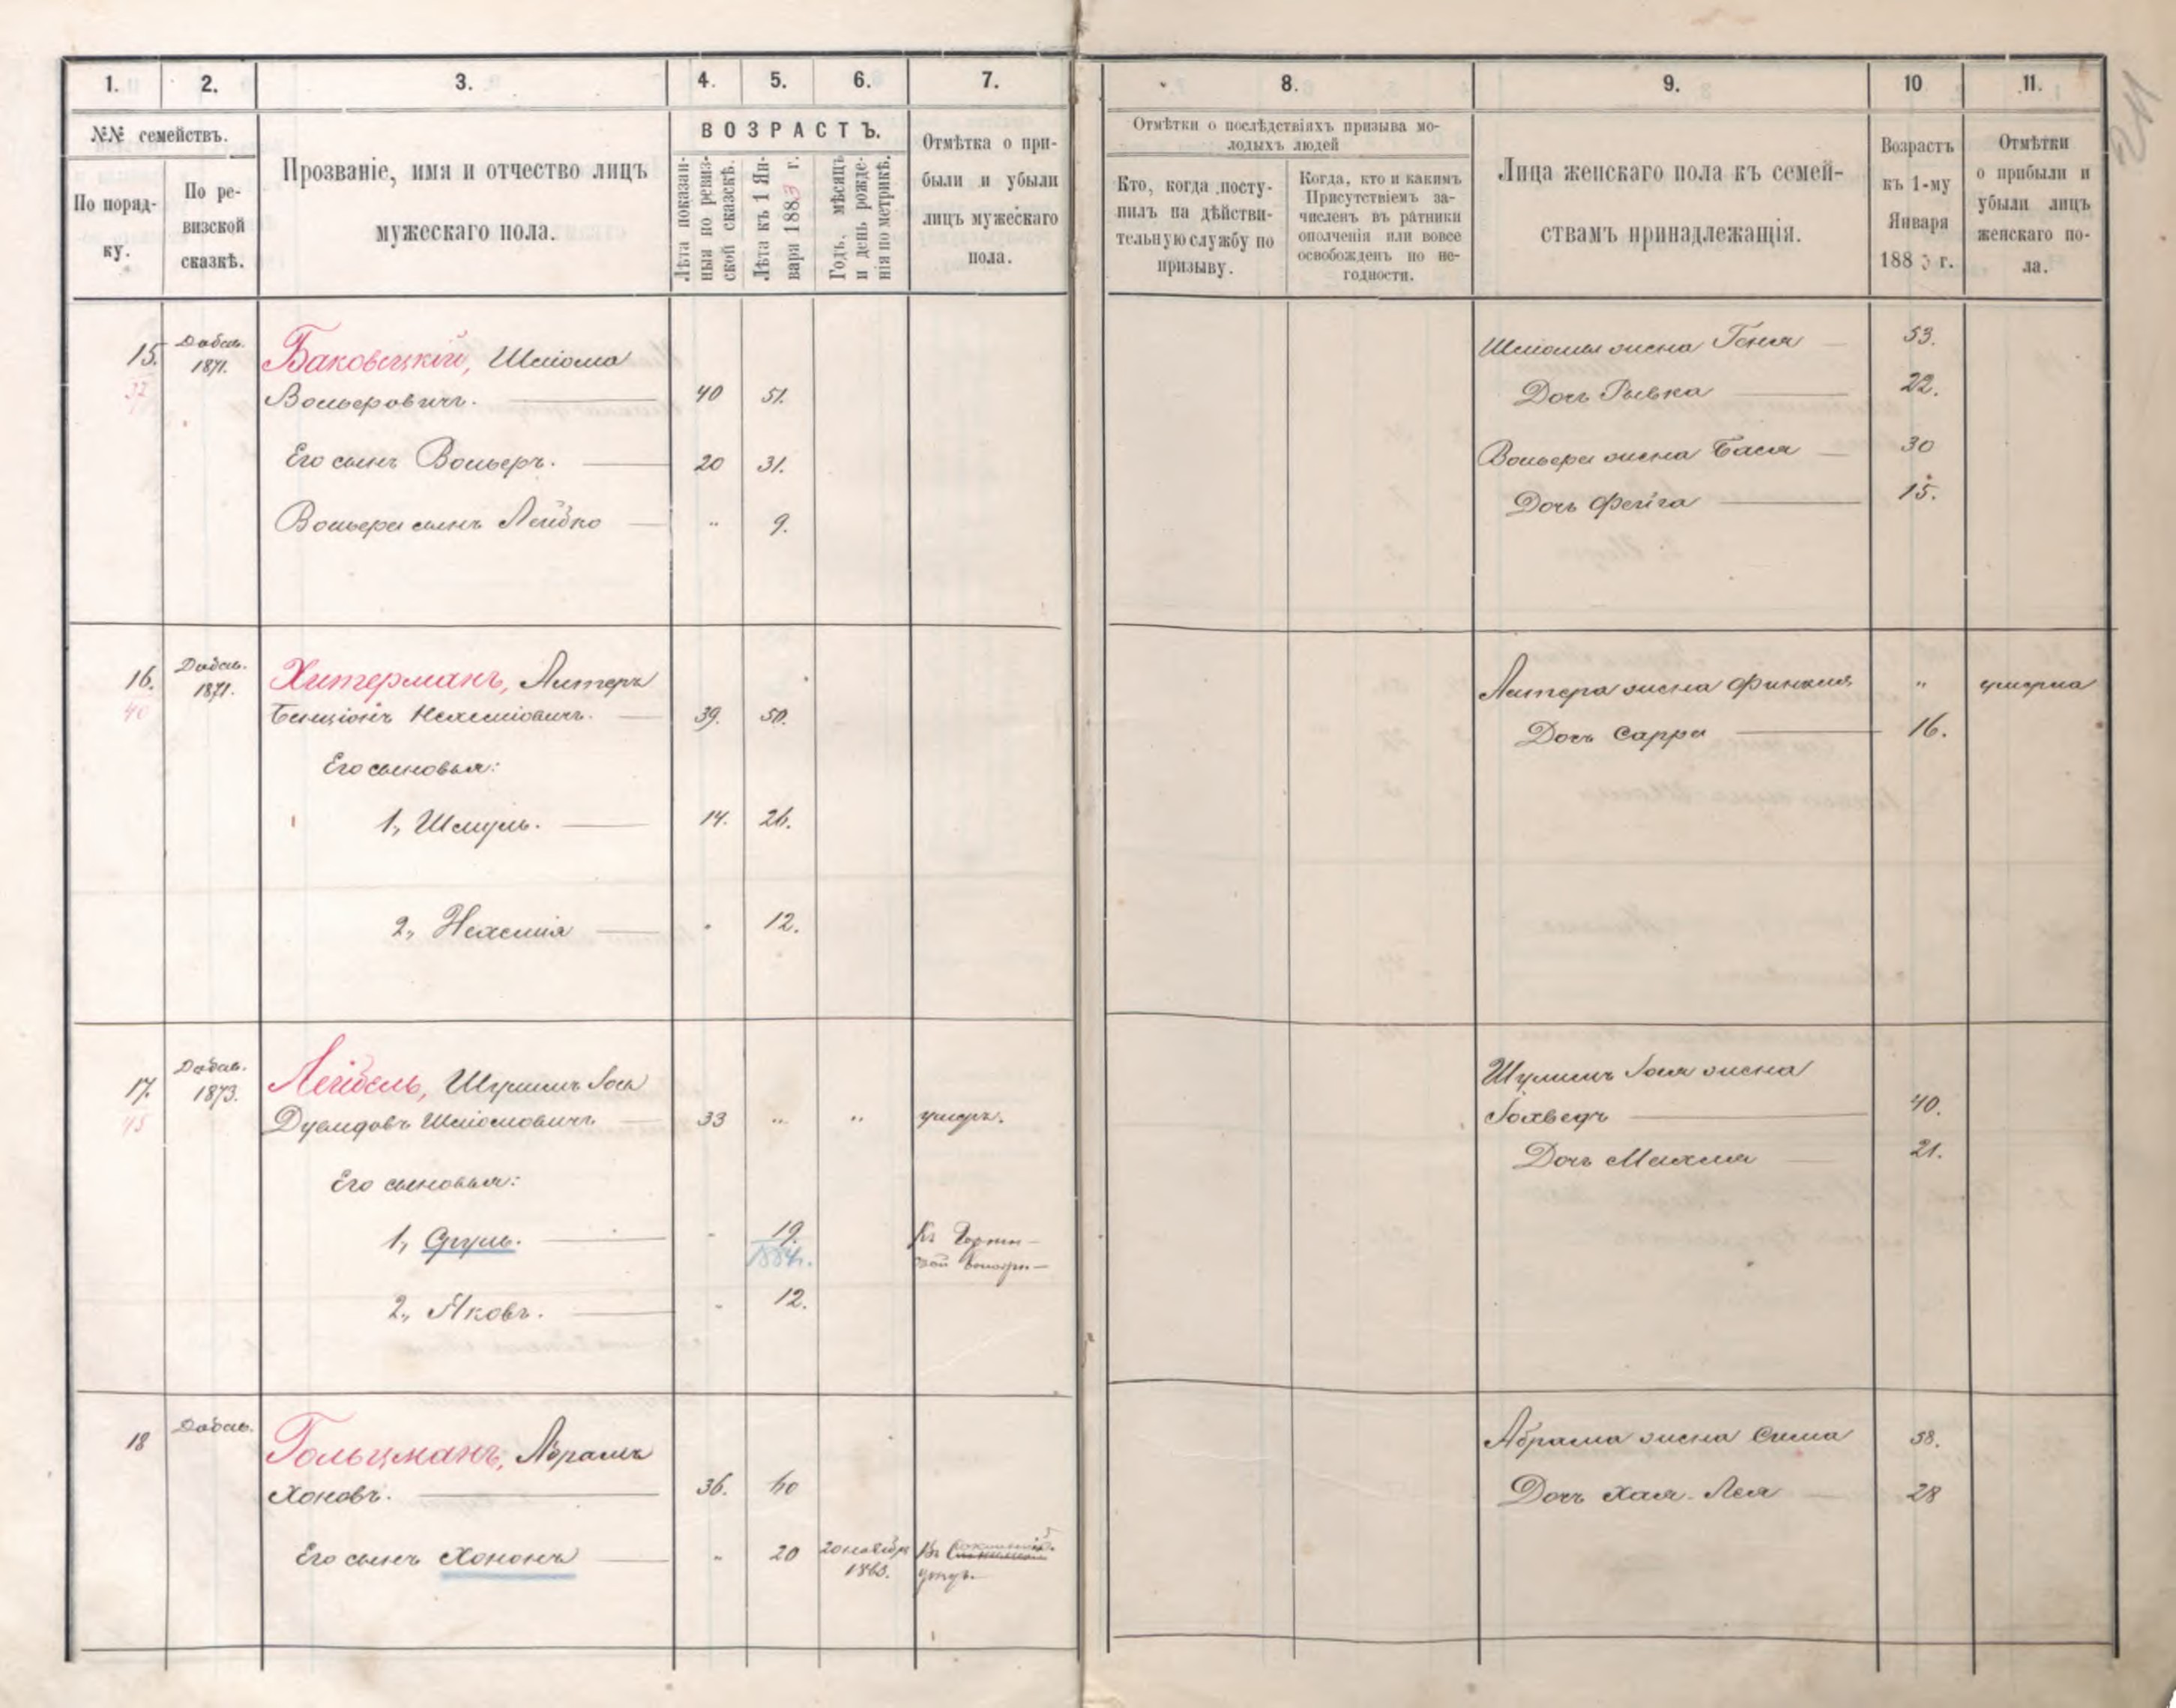 1. 2. 3. 4. 5. 6. 7. 8. 9. 10 11.
№№ семействъ.
По порядку.
По ревизской сказкѣ.
Прозваніе, имя и отчество лицъ
мужескаго пола.
ВОЗРАСТЪ.
Лѣта показанныя по ревизской сказкѣ.
Лѣта къ 1 Января 1883 г.
Годъ, мѣсяцъ и день рожденія по метрикѣ.
Отмѣтка о прибыли и убыли лицъ мужескаго пола.
Отмѣтки о послѣдствіяхъ призыва молодыхъ людей
Кто, когда поступилъ на дѣйствительную службу по призыву.
Когда, кто и какимъ Присутствіемъ зачисленъ въ ратники ополченія или вовсе освобожденъ по негодности.
Лица женскаго пола къ семействамъ принадлежащія.
Возрастъ къ 1-му Января 1883 г.
Отмѣтки о прибыли и убыли лицъ женскаго пола.
15. Добав. 1871. Баковецкій, Шліома
Вольеровичъ. 40 51.
Его сынъ Вольеръ. 20 31.
Вольера сынъ Лейбко " 9.
Шліомы жена Геня 53.
Дочь Рывка 22.
Вольера жена Бася 30
Дочь Фейга 15.
16. 40 Добав. 1871. Хитерманъ, Литеръ
Бенціонъ Нехеміовичъ. 39. 50.
Его сыновья:
1, Шмуль. 14. 26.
2, Нехемія " 12.
Литера жена Финкля " умерла
Дочь Сарра 16.
17. 45 Добав. 1873. Лейдель, Шулимъ Іось
Дувидовъ Шліомовичъ 33 " " умеръ.
Его сыновья:
1, Сруль. " 19. 1884.
2, Яковъ. " 12.
Шулимъ Іося жена
Іохведъ 40.
Дочь Махля 21.
18 Добав. Гольцманъ, Абрамъ
Хоновъ. 36. 60
Его сынъ Хононъ " 20 20 ноября 1863. Въ
уѣздъ.
Абрама жена Сима 58.
Дочь Хая-Лея 28